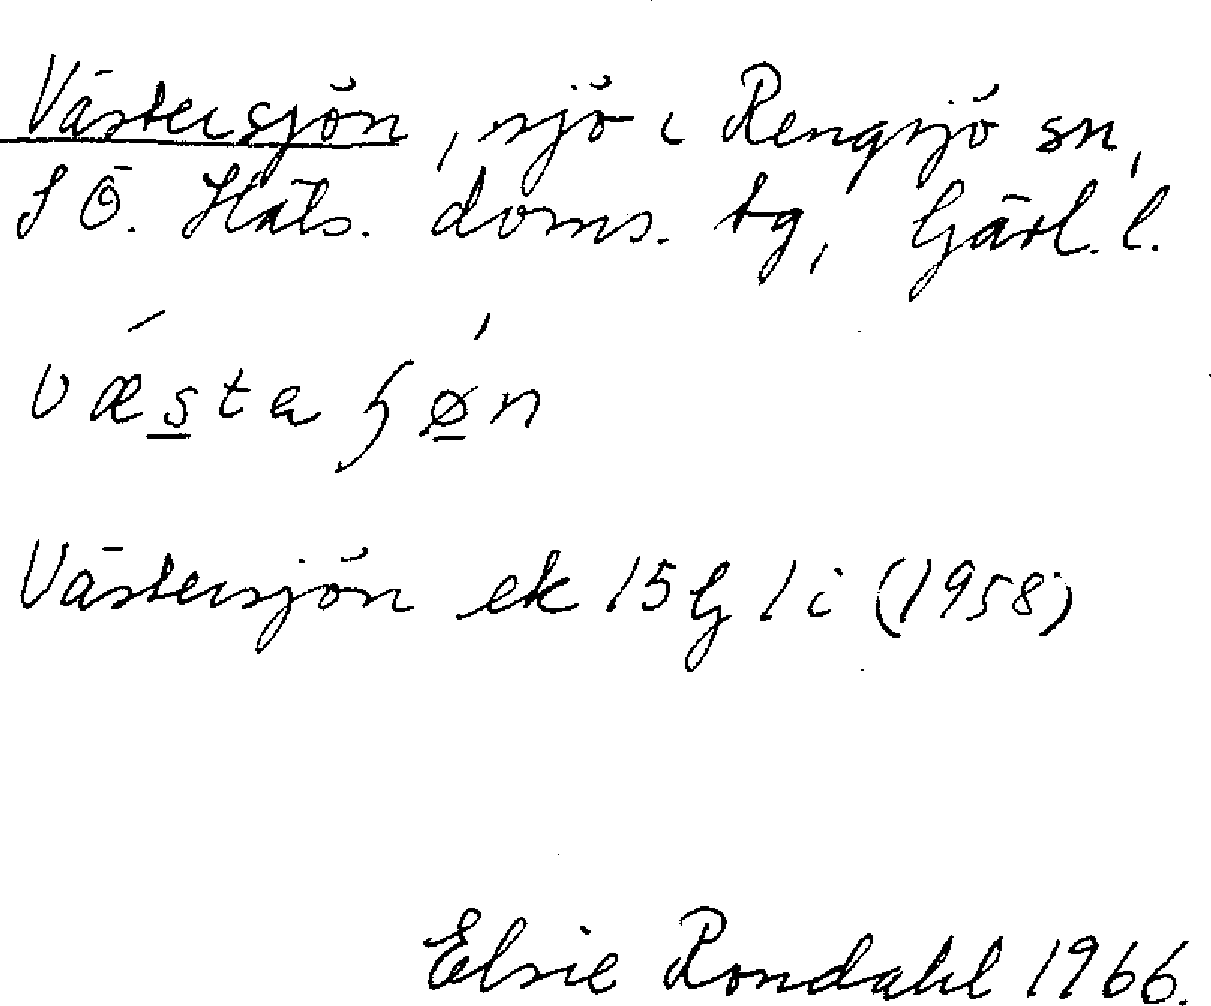 Västersjön, sjö i Rengsjö sn,
SÖ. Häls. doms. tg, Gävl. l.
vǽstaʃø̀n
Västersjön ek 15G 1i (1958)
Elsie Rondahl 1966.